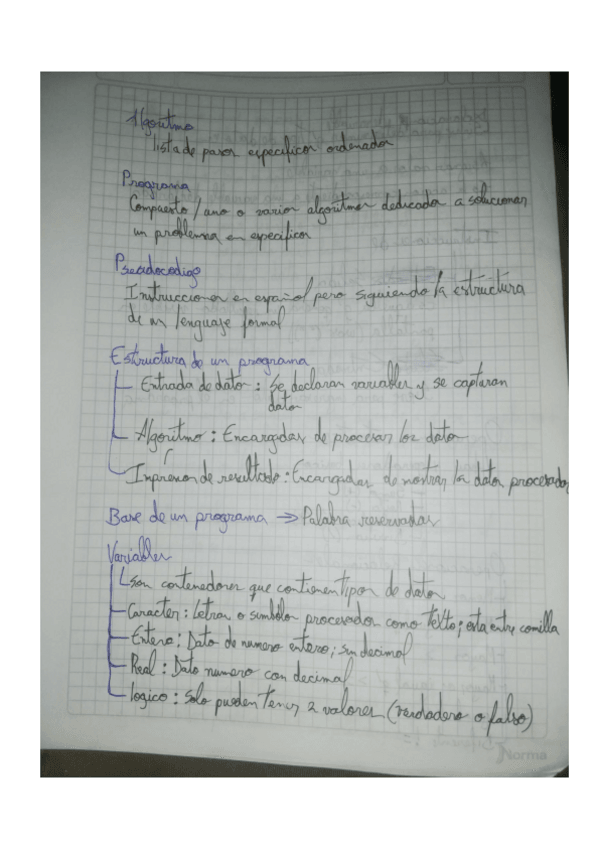 Algoritmo
lista de pasos especificos ordenados
Programa
Compuesto / uno o varios algoritmos dedicados a solucionar
un problema en especificos
Pseudocodigo
Instrucciones en español pero siguiendo la estructura
de un lenguaje formal
Estructura de un programa
Entrada de datos: Se declaran variables y se capturan
datos
Algoritmo: Encargadas de procesar los datos
Impresion de resultado: Encargadas de mostrar los datos procesados
Base de un programa → Palabra reservadas
Variables
Son contenedores que contienen tipos de datos
Caracter: Letras o simbolos procesados como texto; esta entre comilla
Entero: Dato de numero entero; sin decimal
Real: Dato numero con decimal
logico: Solo pueden tener 2 valores (verdadero o falso)
Norma